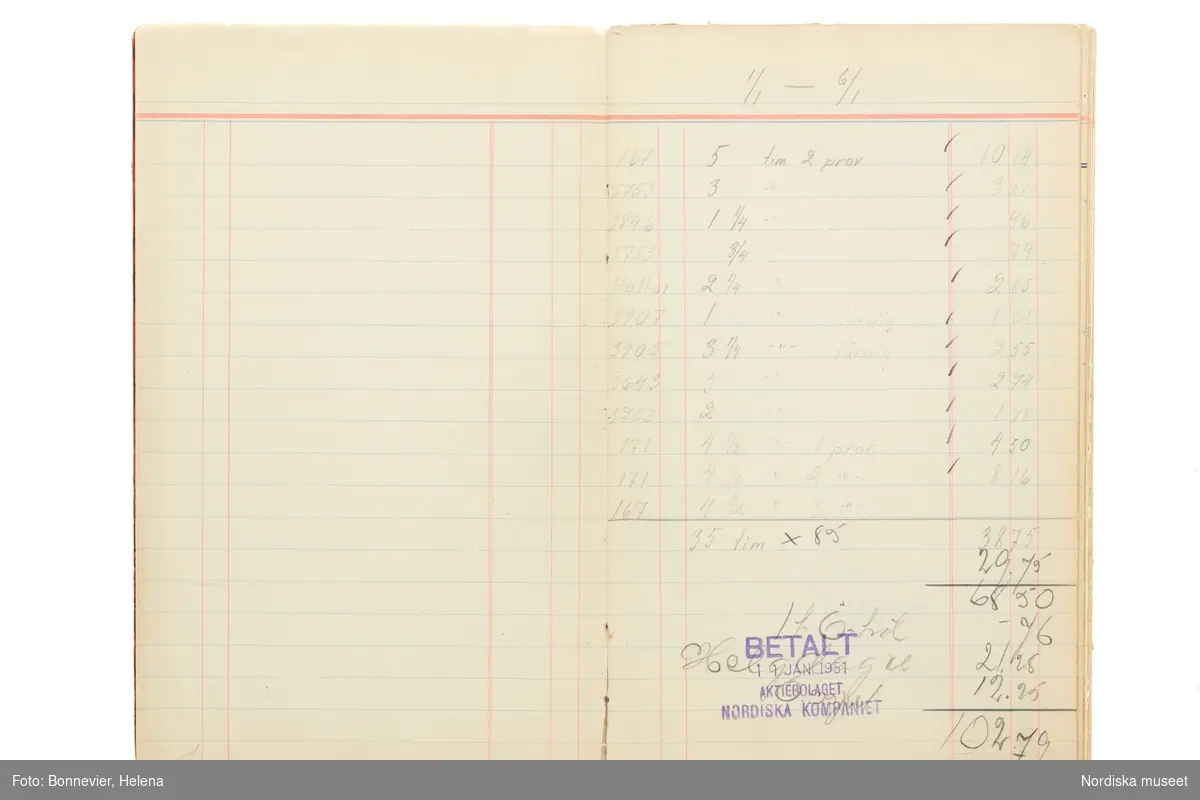 1/1 — 6/1
167 5 tim 2 prov. 10 14
5753 3 "
1846 1 1/4 -"- 96
5753 3/4 " 79
Hallar 2 1/4 " 2 85
3907 1 -"- färdig 1 01
3905 3 1/4 -"- färdig 2 55
5643 3 -"- 2 74
2 -"- 1 78
171 4 1/2 -"- 1 prov. 4 50
171 4 1/2 " 2 -"- 8 16
167 4 1/2 " -"-
35 tim × 85 38 75
29.75
68 50
- 76
Helgdagne 21.25
12.25
102.79
BETALT
1 1 JAN. 1951
AKTIEBOLAGET
NORDISKA KOMPANIET
Foto: Bonnevier, Helena
Nordiska museet